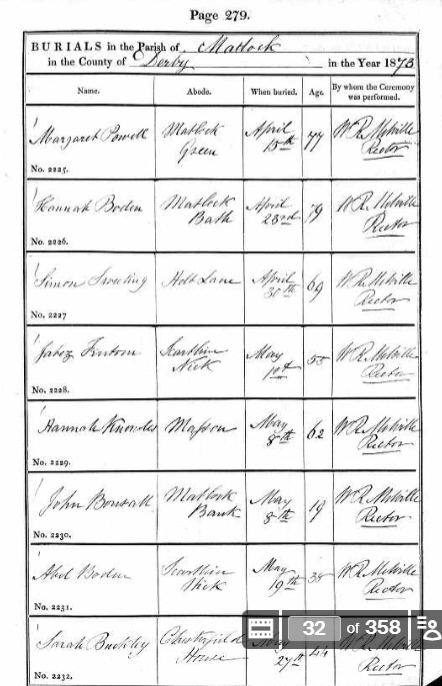 Page 279.
BURIALS in the Parish of Matlock
in the County of Derby in the Year 1873
Name. Abode. When buried. Age. By whom the Ceremony was performed.
Margaret Powell Matlock Green April 15th 77 W.R. Melville Rector
No. 2225.
Hannah Boden Matlock Bath April 23rd 79 W.R. Melville Rector
No. 2226.
Simon Holt Lane April 30th 69 W.R. Melville Rector
No. 2227
Jabez Fentom Scarthin Nick May 1st 55 W.R. Melville Rector
No. 2228.
Hannah Knowles Masson May 8th 62 W.R. Melville Rector
No. 2229.
John Bonsall Matlock Bank May 8th 19 W.R. Melville Rector
No. 2230.
Abel Boden Scarthin Nick May 19th W.R. Melville Rector
No. 2231.
Sarah Buckley Chesterfield House 27th 44 W.R. Melville Rector
No. 2232.
32 of 358